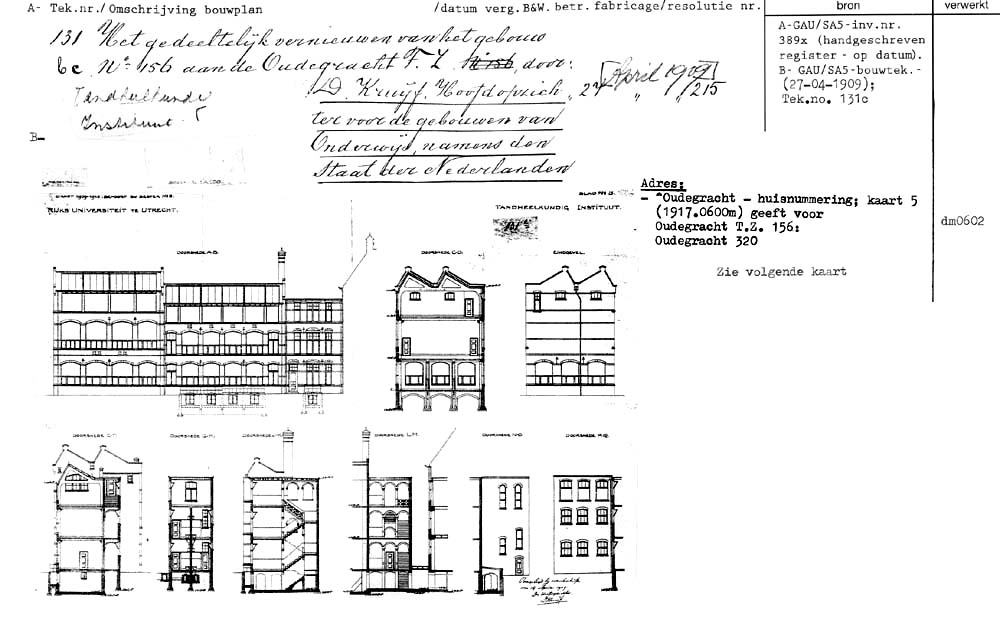 A- Tek.nr./ Omschrijving bouwplan /datum verg.B&W. betr. fabricage/resolutie nr.
bron
verwerkt
131 Het gedeeltelijk vernieuwen van het gebouw
bc No 156 aan de Oudegracht T. Z. door:
D. Kruyf. Hoofdopzich „ 27 April 1909 „ / 215
Tandheelkundig
Instituut.
ter voor de gebouwen van
B-
Onderwijs, namens den
Staat der Nederlanden
A-GAU/SA5-inv.nr.
389x (handgeschreven
register - op datum).
B- GAU/SA5-bouwtek.-
(27-04-1909);
Tek.no. 131c
Adres:
- "Oudegracht - huisnummering; kaart 5
(1917.0600m) geeft voor
Oudegracht T.Z. 156:
Oudegracht 320
Zie volgende kaart
dm0602
RIJKS UNIVERSITEIT TE UTRECHT.
TANDHEELKUNDIG INSTITUUT.
DOORSNEDE A-B.
DOORSNEDE C-D.
EINDGEVEL.
DOORSNEDE
DOORSNEDE G-H.
DOORSNEDE
DOORSNEDE L-M.
DOORSNEDE N-O.
DOORSNEDE P-Q.